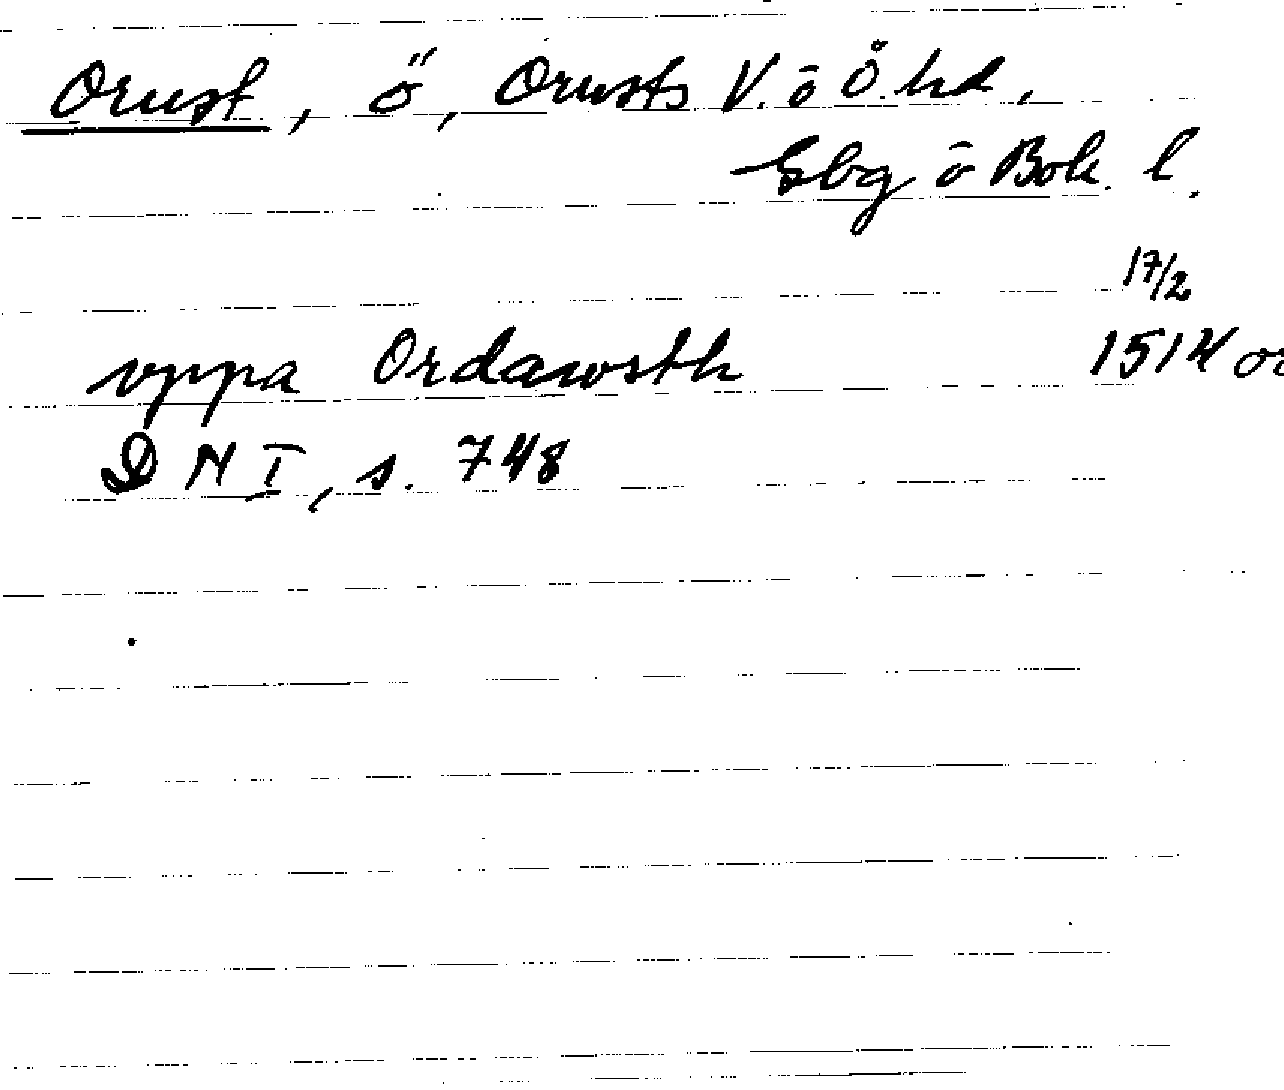 Orust, ö, Orusts V. o Ö. hd.
Gbg o Boh. l.
17/2
vppa Ordaworsth 1514 or
D N I, s. 748